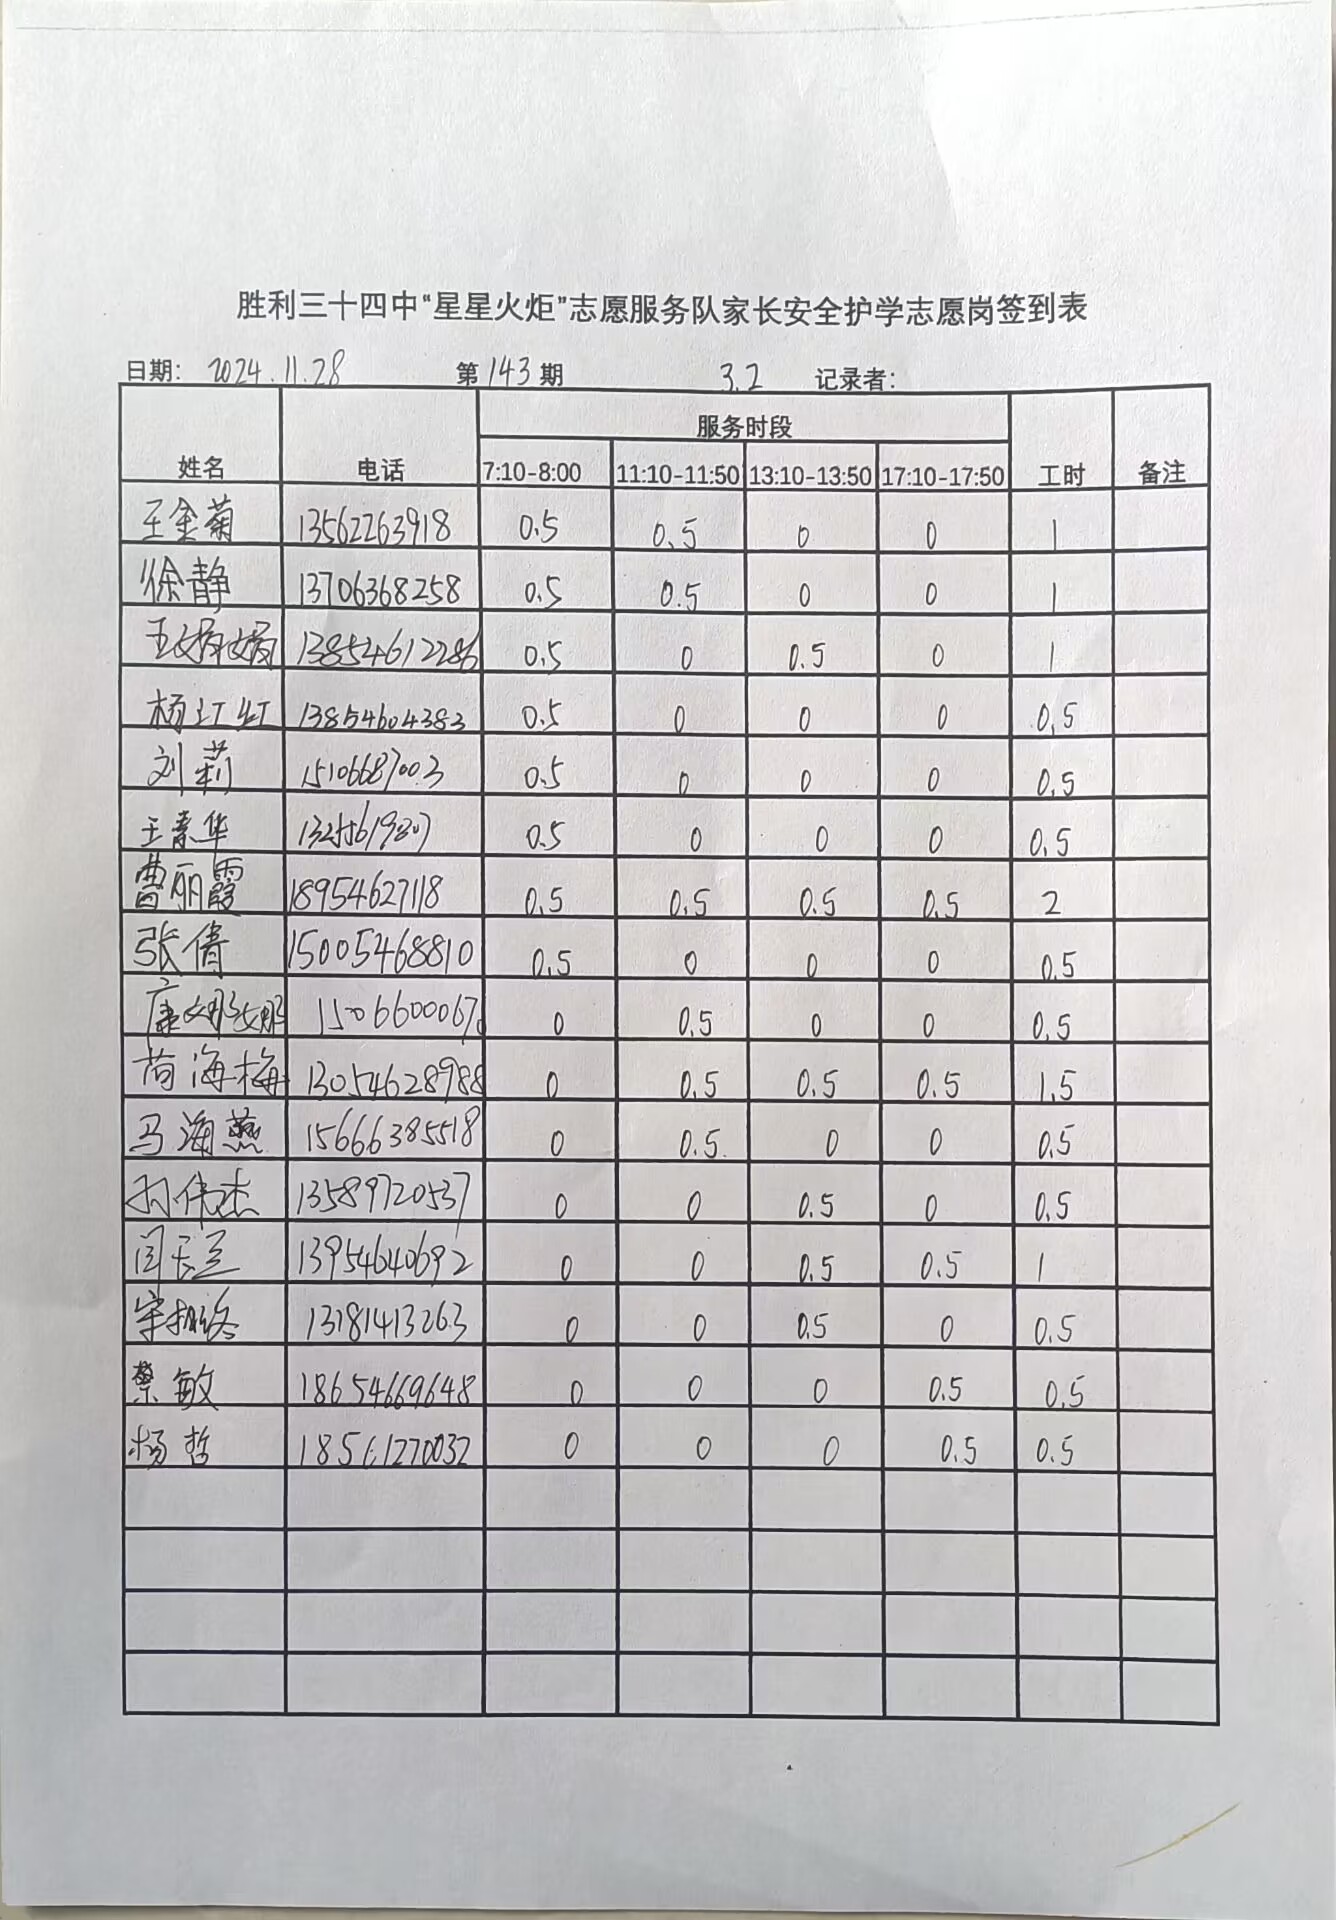 胜利三十四中“星星火炬”志愿服务队家长安全护学志愿岗签到表
日期: 2024.11.28 第143期 3.2 记录者:
服务时段
姓名 电话 7:10-8:00 11:10-11:50 13:10-13:50 17:10-17:50 工时 备注
王金菊 13562263918 0.5 0.5 0 0 1
徐静 13706368258 0.5 0.5 0 0 1
王娟娟 13854612286 0.5 0 0.5 0 1
杨江虹 13854604383 0.5 0 0 0 0.5
刘莉 15106687003 0.5 0 0 0 0.5
王素华 0.5 0 0 0 0.5
曹丽霞 18954627118 0.5 0.5 0.5 0.5 2
张倩 15005468810 0.5 0 0 0 0.5
康娜娜 0 0.5 0 0 0.5
荀海梅 13054628988 0 0.5 0.5 0.5 1.5
马海燕 15666385518 0 0.5 0 0 0.5
孙伟杰 13589720537 0 0 0.5 0 0.5
闫长兰 13954640692 0 0 0.5 0.5 1
13181413263 0 0 0.5 0 0.5
綦敏 18654669648 0 0 0 0.5 0.5
杨哲 18561270032 0 0 0 0.5 0.5